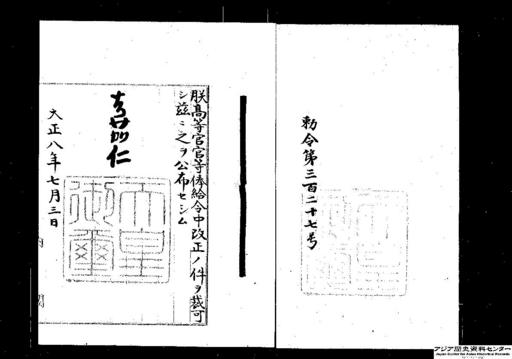 勅令第三百二十七号
朕高等官官等俸給令中改正ノ件ヲ裁可
シ茲ニ之ヲ公布セシム
嘉仁
天皇御璽
大正八年七月三日
内閣
アジア歴史資料センター
Japan Center for Asian Historical Records